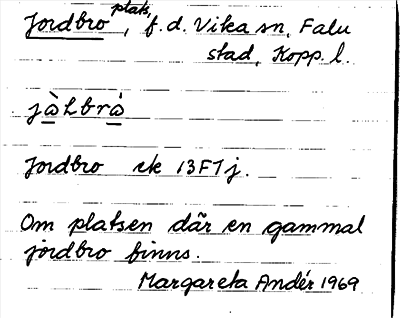 Jordbro plats, f.d. Vika sn, Falu
stad, Kopp. l.
jὰLbrὰ
Jordbro ek 13F7j.
Om platsen där en gammal
jordbro finns.
Margareta Andér 1969